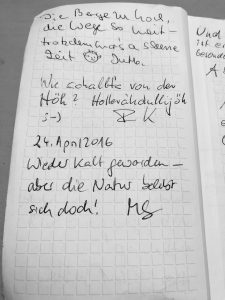 Die Berge zu hoch,
die Wege so weit –
trotzdem war's a schene
Zeit ☺ Jutta.
Wie schallts von der
Höh? Hollerähdulljöh
:-) K
24. April 2016
Wieder kalt geworden –
aber die Natur
sich doch! MS
Und
ist e